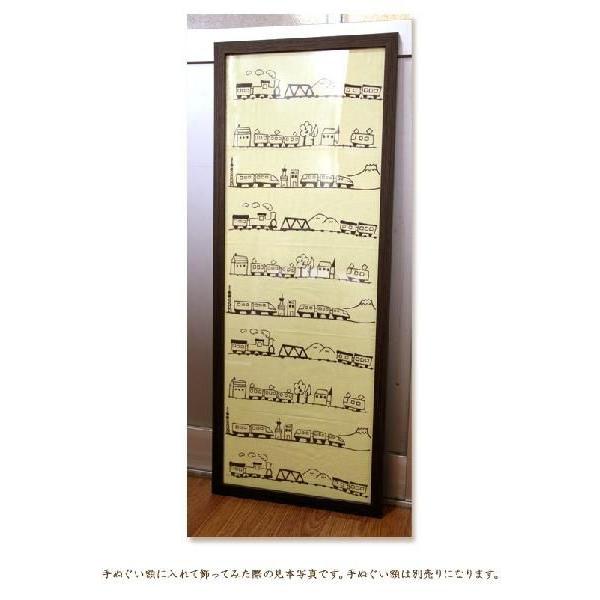 手ぬぐい額に入れて飾ってみた際の見本写真です。手ぬぐい額は別売りになります。